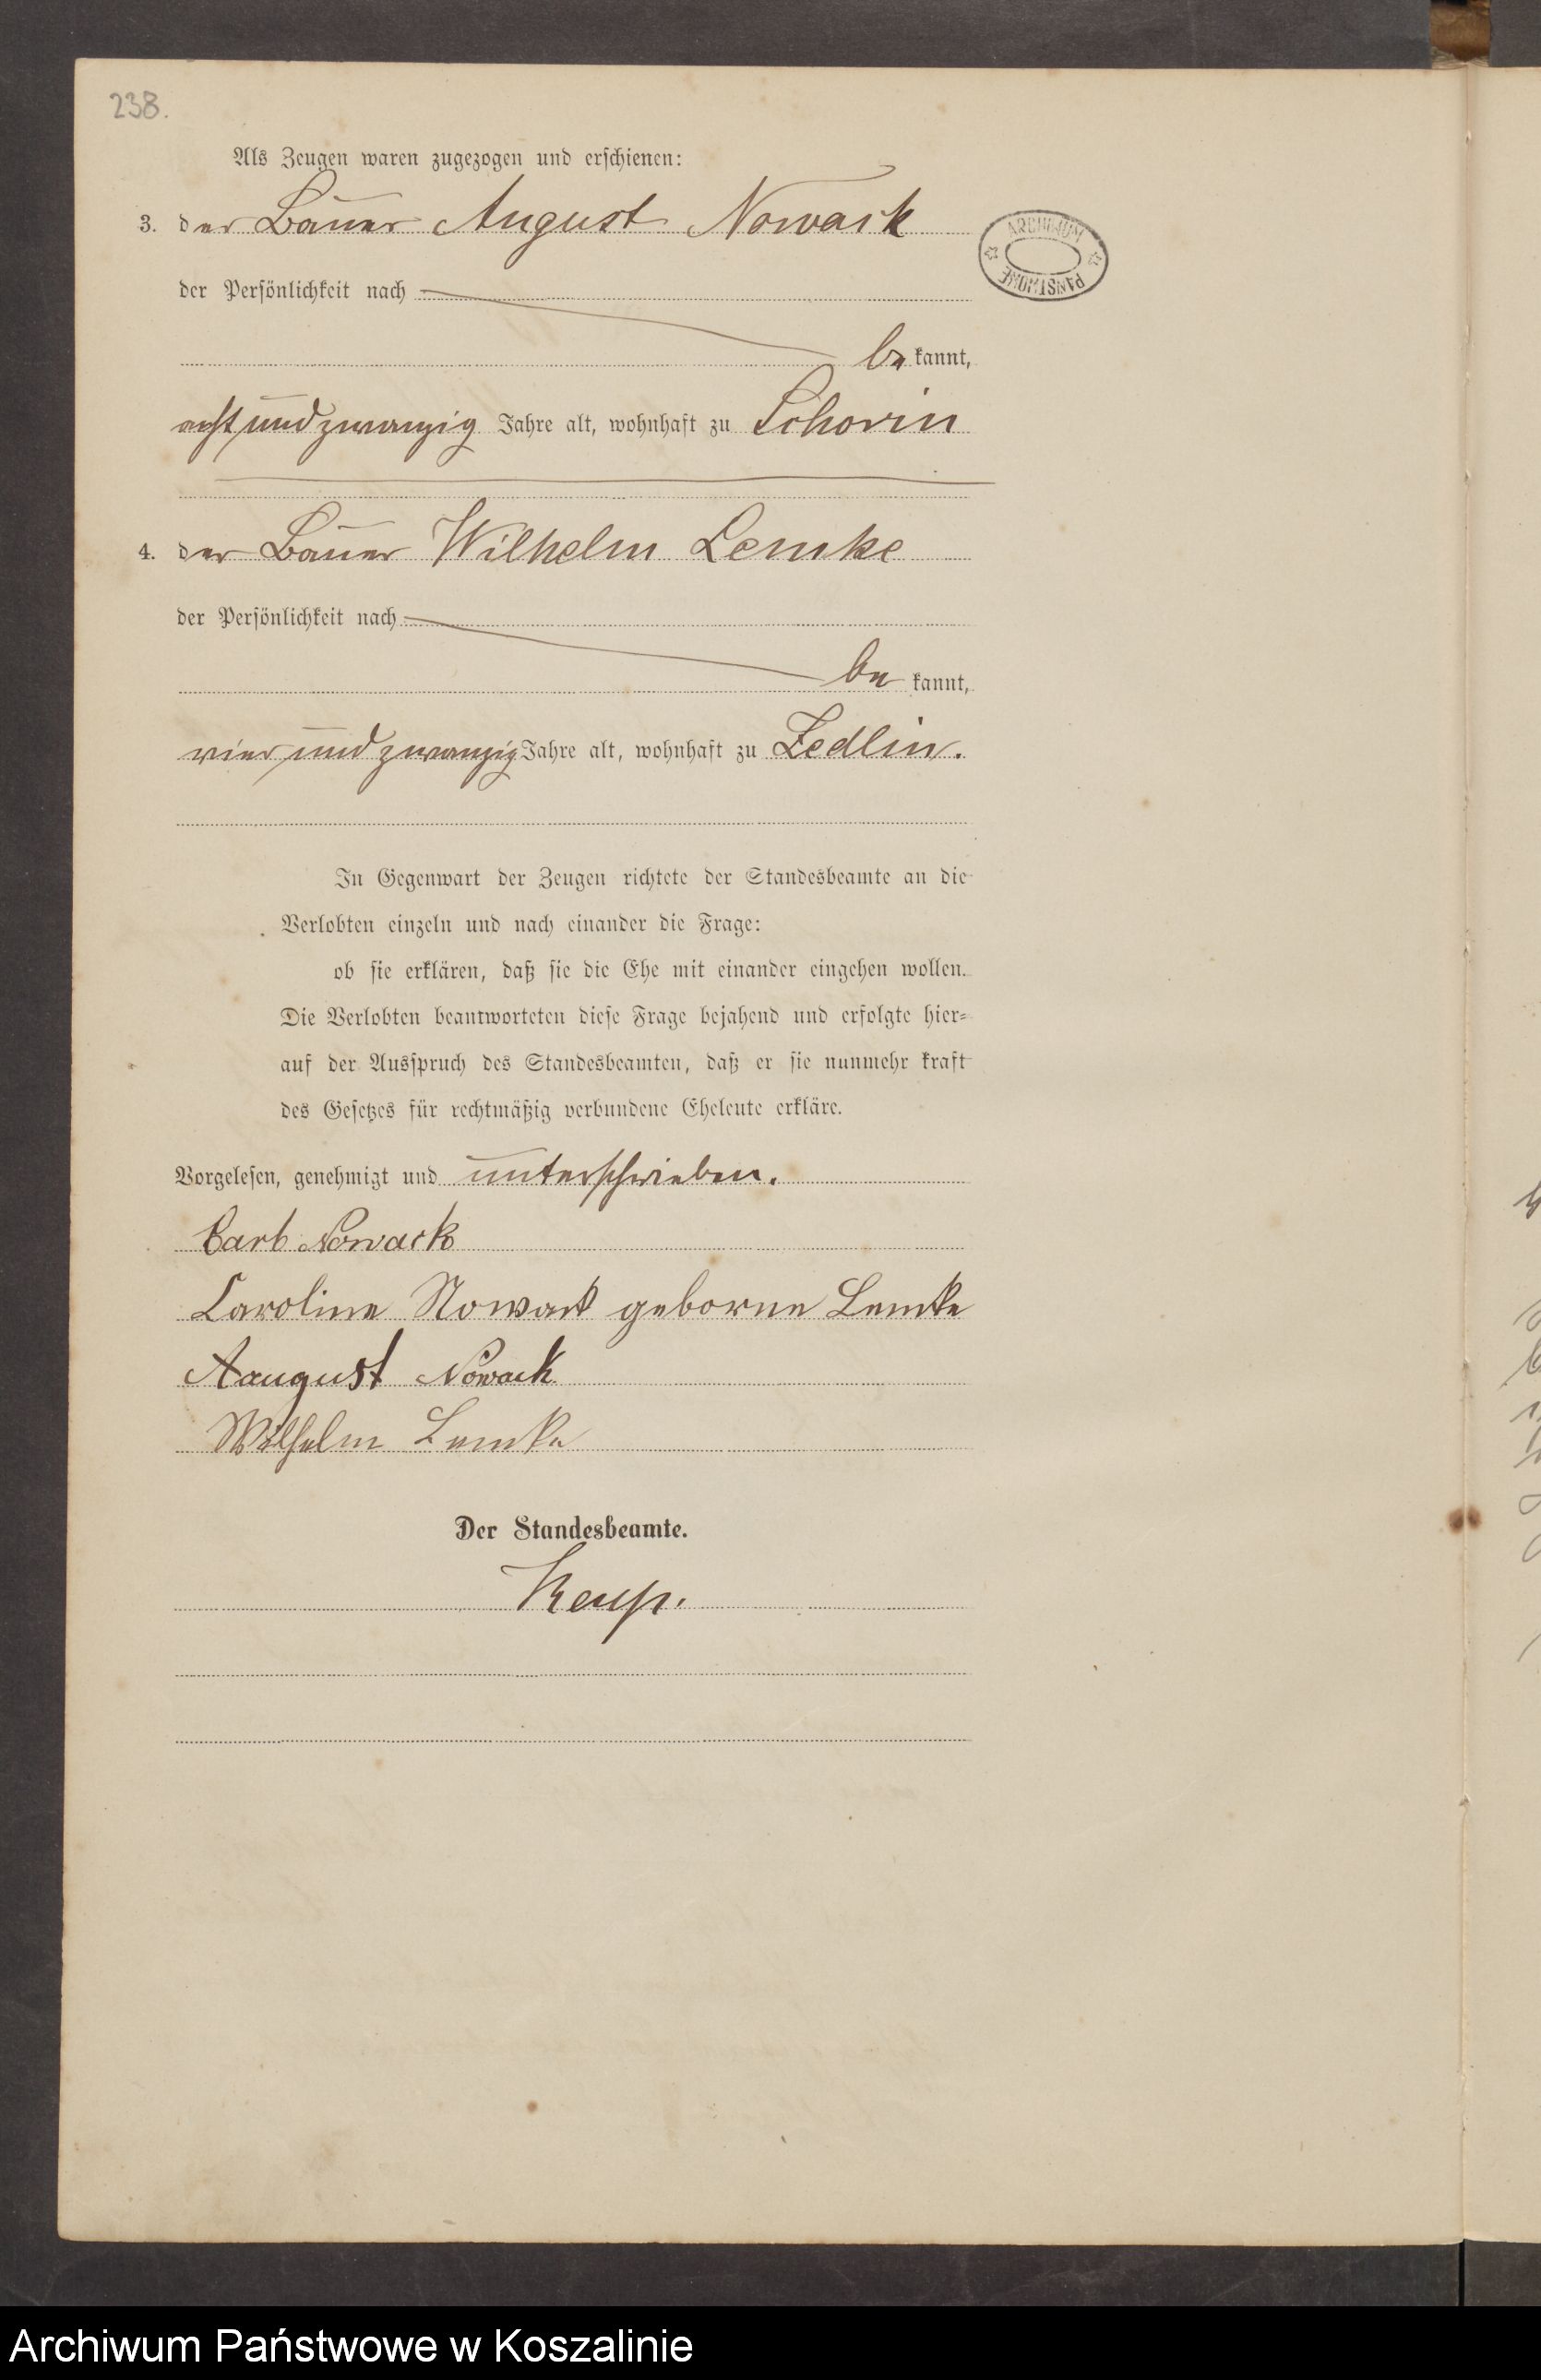 238.
Als Zeugen waren zugezogen und erschienen:
3. der Bauer August Nowack
der Persönlichkeit nach
be kannt,
acht und zwanzig Jahre alt, wohnhaft zu Schorin
4. der Bauer Wilhelm Lemke
der Persönlichkeit nach
be kannt,
vier und zwanzig Jahre alt, wohnhaft zu Zedlin.
In Gegenwart der Zeugen richtete der Standesbeamte an die
Verlobten einzeln und nach einander die Frage:
ob sie erklären, daß sie die Ehe mit einander eingehen wollen.
Die Verlobten beantworteten diese Frage bejahend und erfolgte hier-
auf der Ausspruch des Standesbeamten, daß er sie nunmehr kraft
des Gesetzes für rechtmäßig verbundene Eheleute erkläre.
Vorgelesen, genehmigt und unterschrieben.
Carl Nowack
Caroline Nowack geborne Lemke
Aaugust Nowack
Wilhelm Lemke
Der Standesbeamte.
ARCHIWUM PAŃSTWOWE
Archiwum Państwowe w Koszalinie